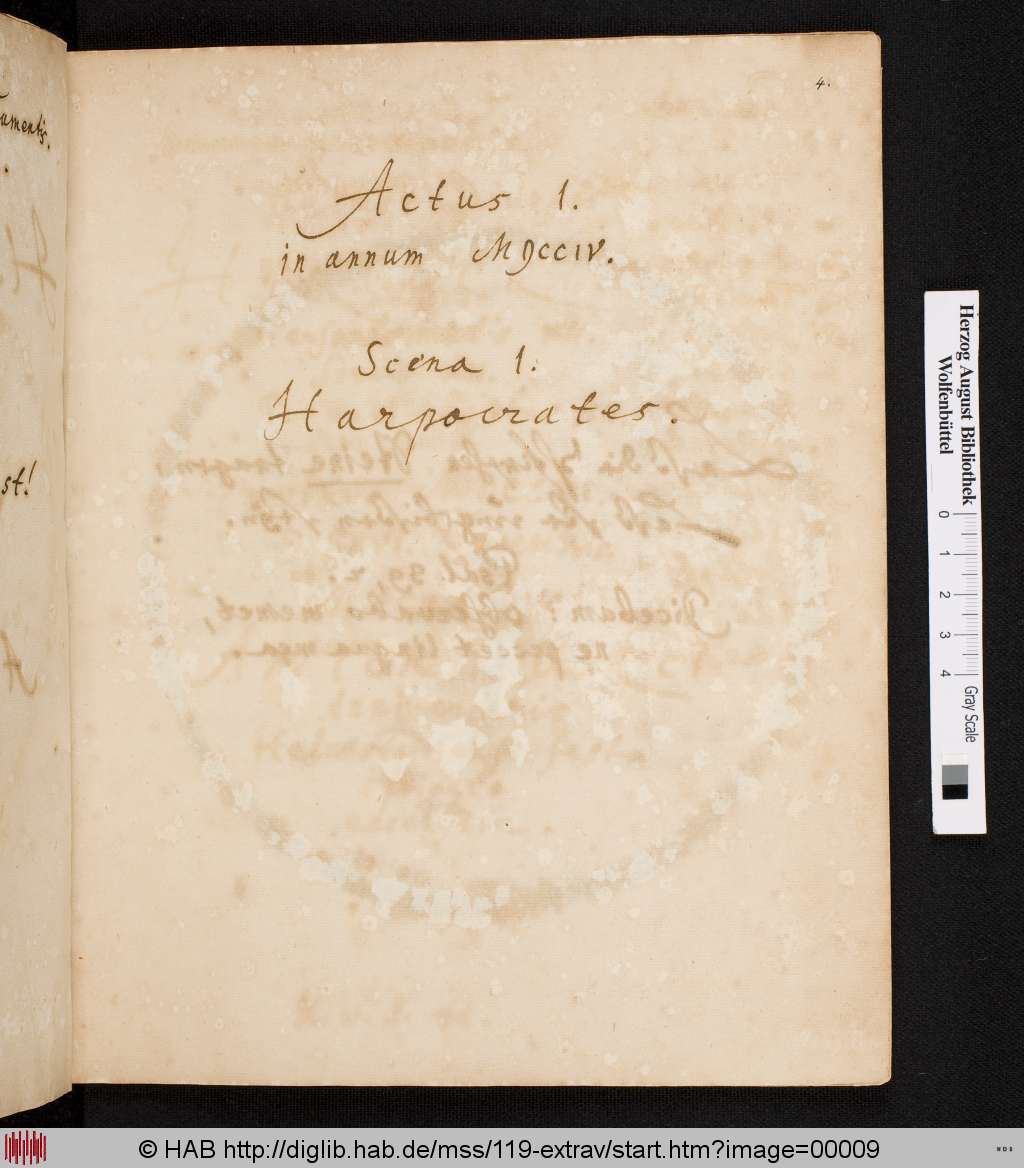 umentis.
st!
4.
Actus 1.
in annum MDCCIV.
Scena 1.
Harpocrates.
Herzog August Bibliothek
Wolfenbüttel
0 1 2 3 4
Gray Scale
© HAB http://diglib.hab.de/mss/119-extrav/start.htm?image=00009